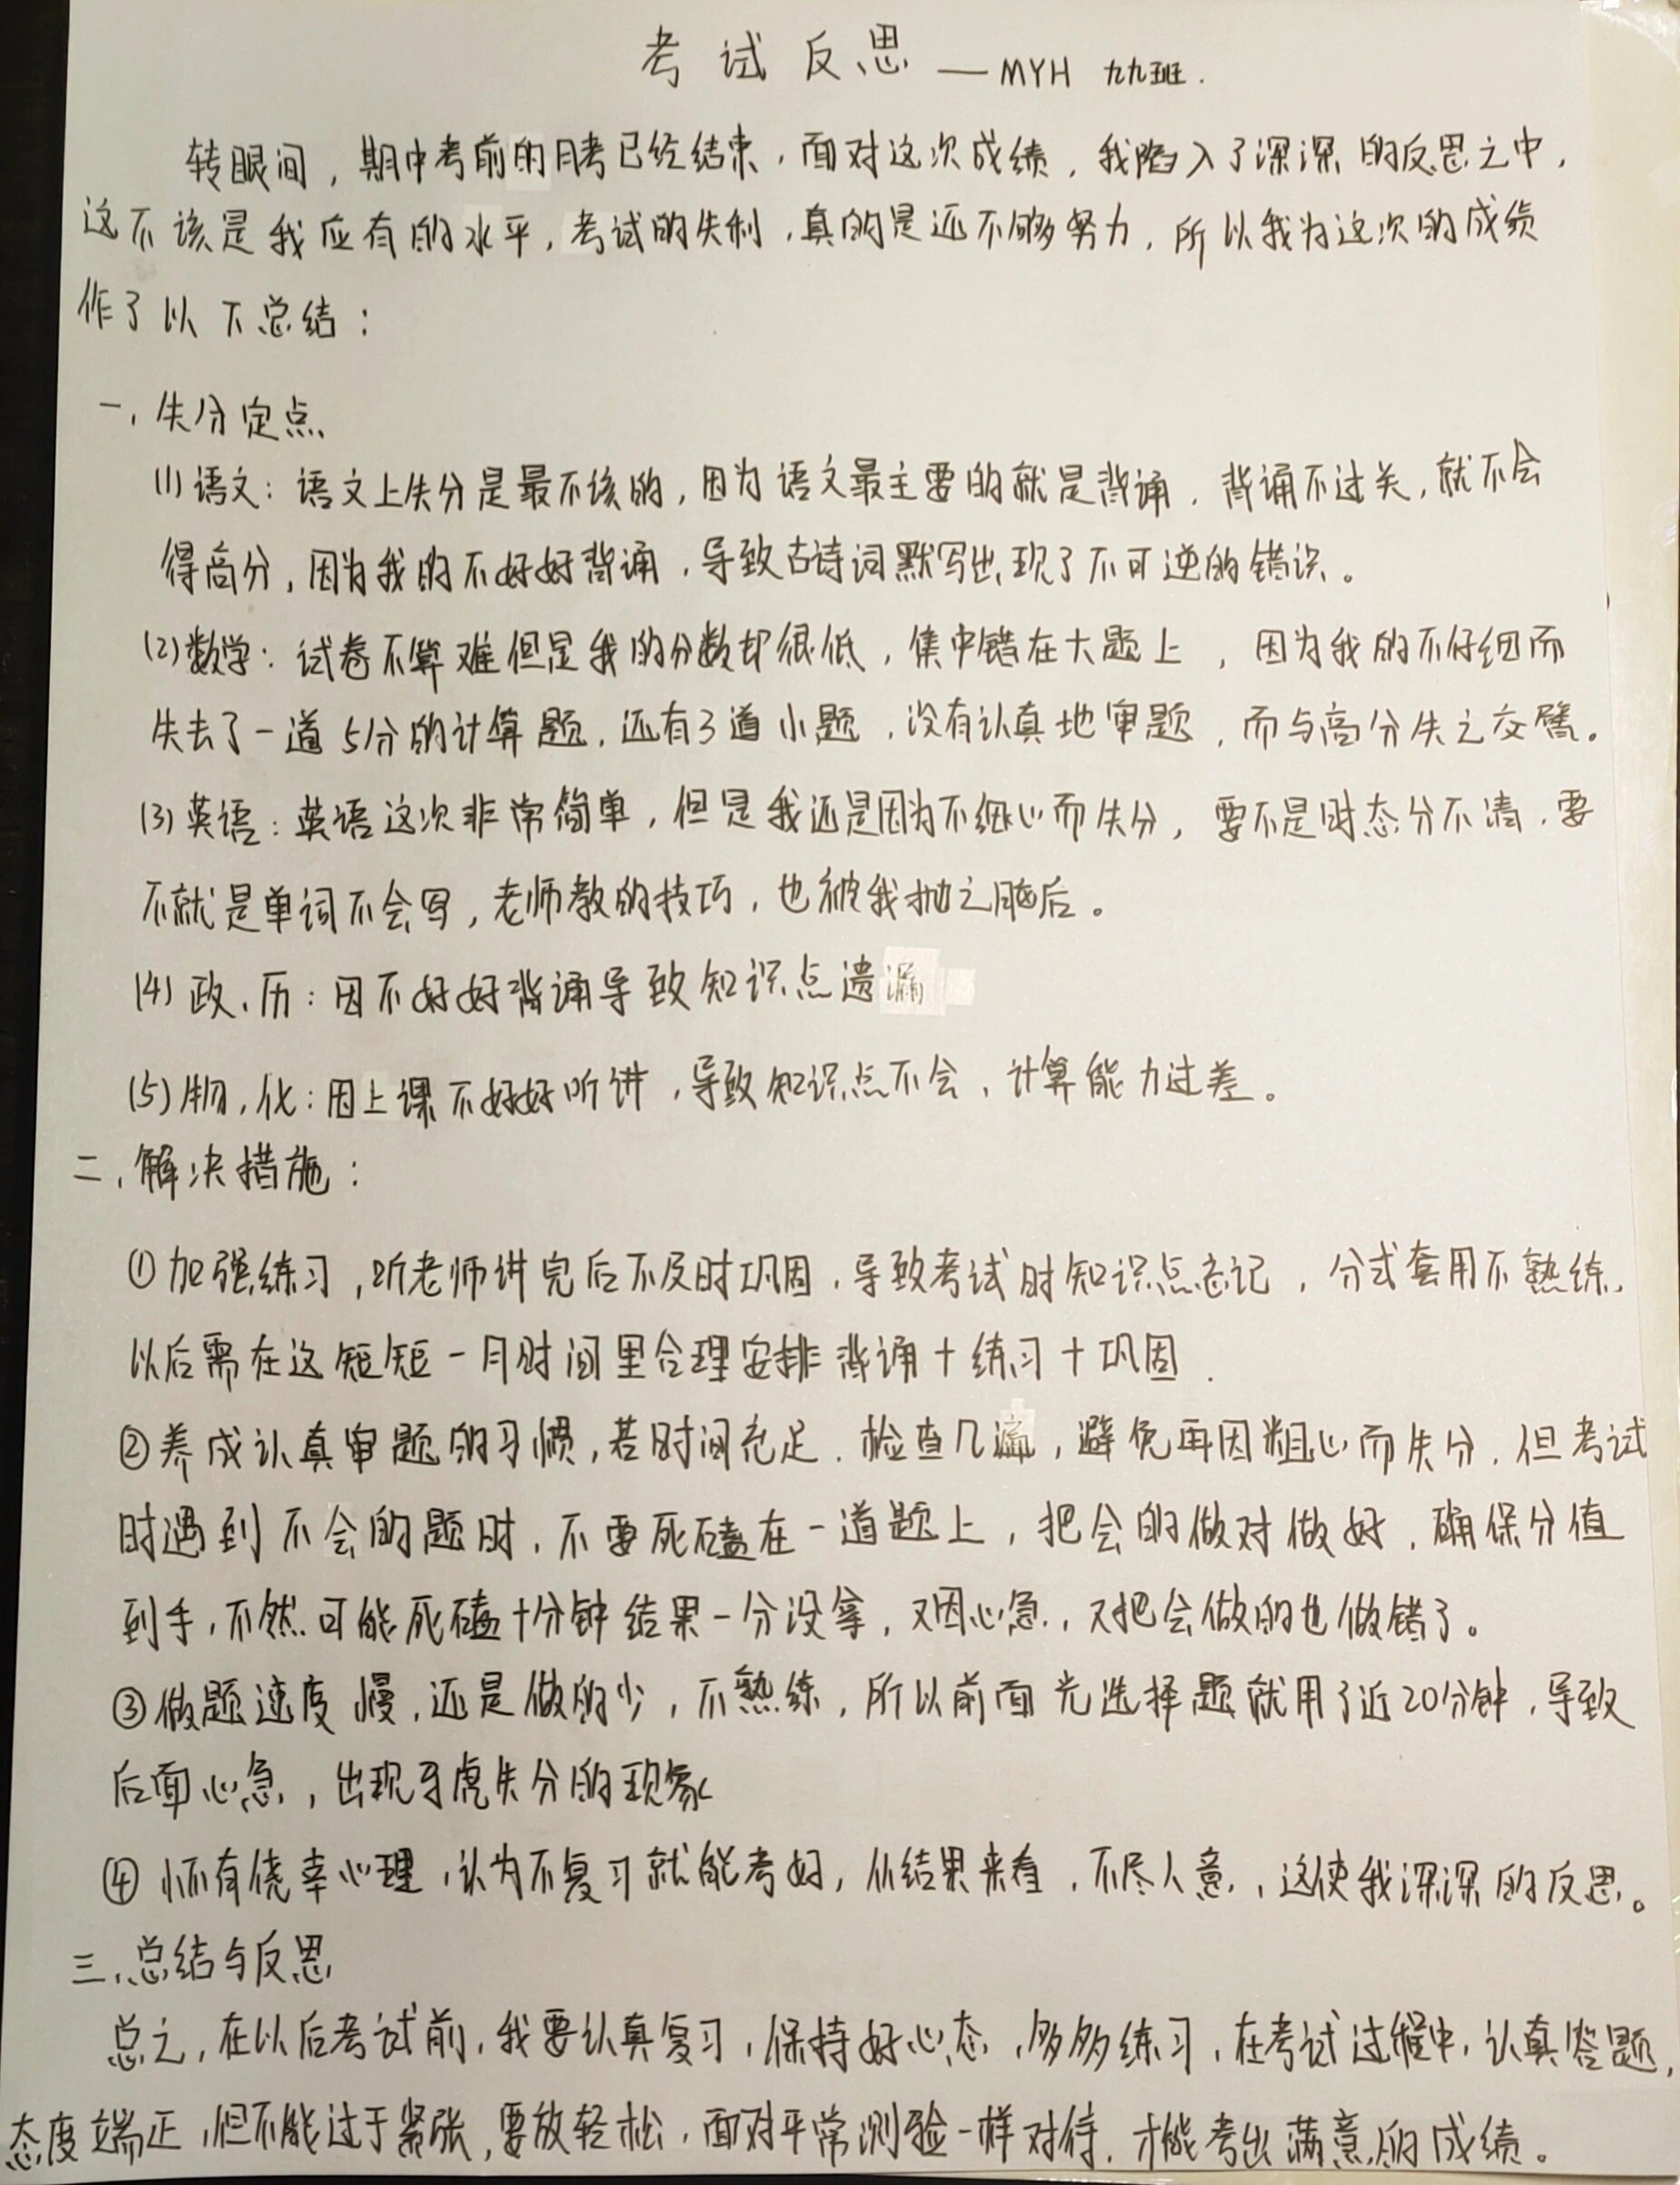 考试反思 — MYH 九九班.
转眼间，期中考前的月考已经结束，面对这次成绩，我陷入了深深的反思之中，
这不该是我应有的水平，考试的失利，真的是还不够努力，所以我为这次的成绩
作了以下总结：
一、失分定点
(1)语文：语文上失分是最不该的，因为语文最主要的就是背诵，背诵不过关，就不会
得高分，因为我的不好好背诵，导致古诗词默写出现了不可逆的错误。
(2)数学：试卷不算难但是我的分数却很低，集中错在大题上，因为我的不仔细而
失去了一道5分的计算题，还有3道小题，没有认真地审题，而与高分失之交臂。
(3)英语：英语这次非常简单，但是我还是因为不细心而失分，要不是时态分不清，要
不就是单词不会写，老师教的技巧，也被我抛之脑后。
(4)政、历：因不好好背诵导致知识点遗漏
(5)物，化：因上课不好好听讲，导致知识点不会、计算能力过差。
二、解决措施：
①加强练习，听老师讲完后不及时巩固，导致考试时知识点忘记，分式套用不熟练，
以后需在这短短一月时间里合理安排背诵+练习+巩固.
②养成认真审题的习惯，若时间充足，检查几遍，避免再因粗心而失分，但考试
时遇到不会的题时，不要死磕在一道题上，把会的做对做好，确保分值
到手，不然可能死磕十分钟结果一分没拿，又因心急，又把会做的也做错了。
③做题速度慢，还是做的少，不熟练，所以前面光选择题就用了近20分钟，导致
后面心急，出现马虎失分的现象
④怀有侥幸心理，认为不复习就能考好，从结果来看，不尽人意，这使我深深的反思。
三、总结与反思
总之，在以后考试前，我要认真复习，保持好心态，多多练习，在考试过程中，认真答题，
态度端正，但不能过于紧张，要放轻松，面对平常测验一样对待，才能考出满意的成绩。